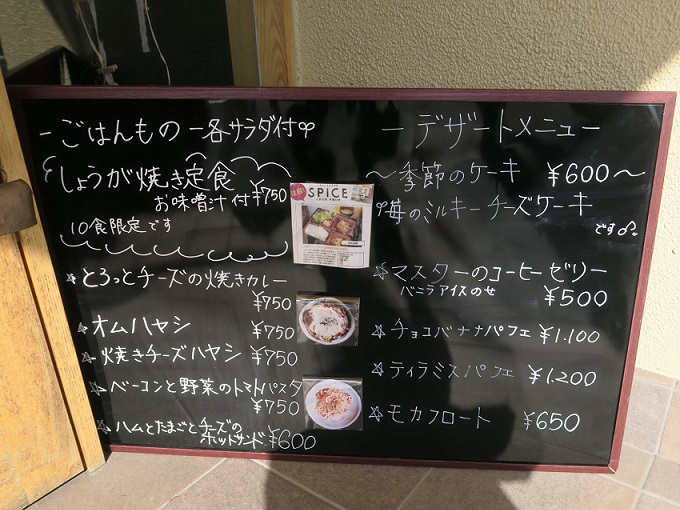 ー ごはんもの ー各サラダ付
しょうが焼き定食
お味噌汁付¥750
10食限定です
☆とろっとチーズの焼きカレー
¥750
☆オムハヤシ ¥750
☆焼きチーズハヤシ ¥750
☆ベーコンと野菜のトマトパスタ
¥750
☆ハムとたまごとチーズの
ホットサンド ¥600
SPICE
ー デザートメニュー
〜季節のケーキ ¥600〜
苺のミルキーチーズケーキ
です♪
☆マスターのコーヒーゼリー
バニラアイスのせ ¥500
☆チョコバナナパフェ ¥1.100
☆ティラミスパフェ ¥1.200
☆モカフロート ¥650